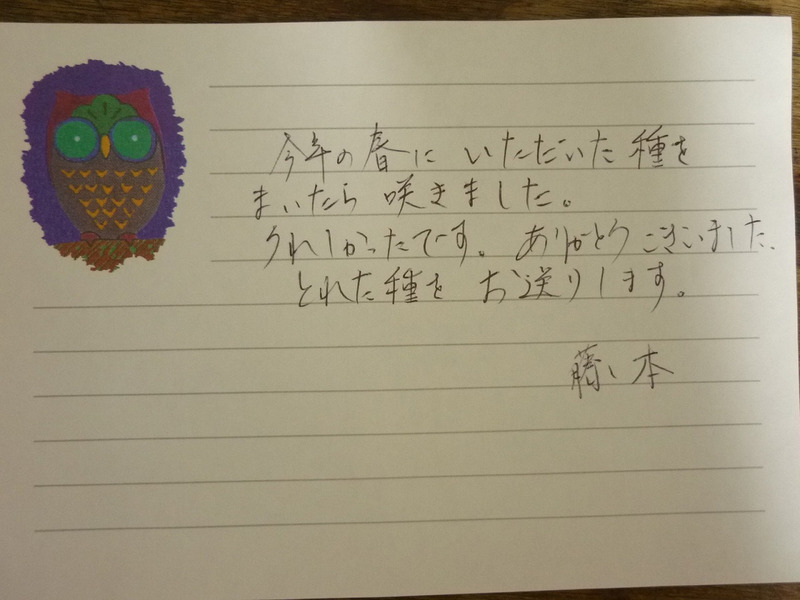 今年の春に いただいた種を
まいたら 咲きました。
うれしかったです。ありがとうございました。
とれた種を お送りします。
藤本